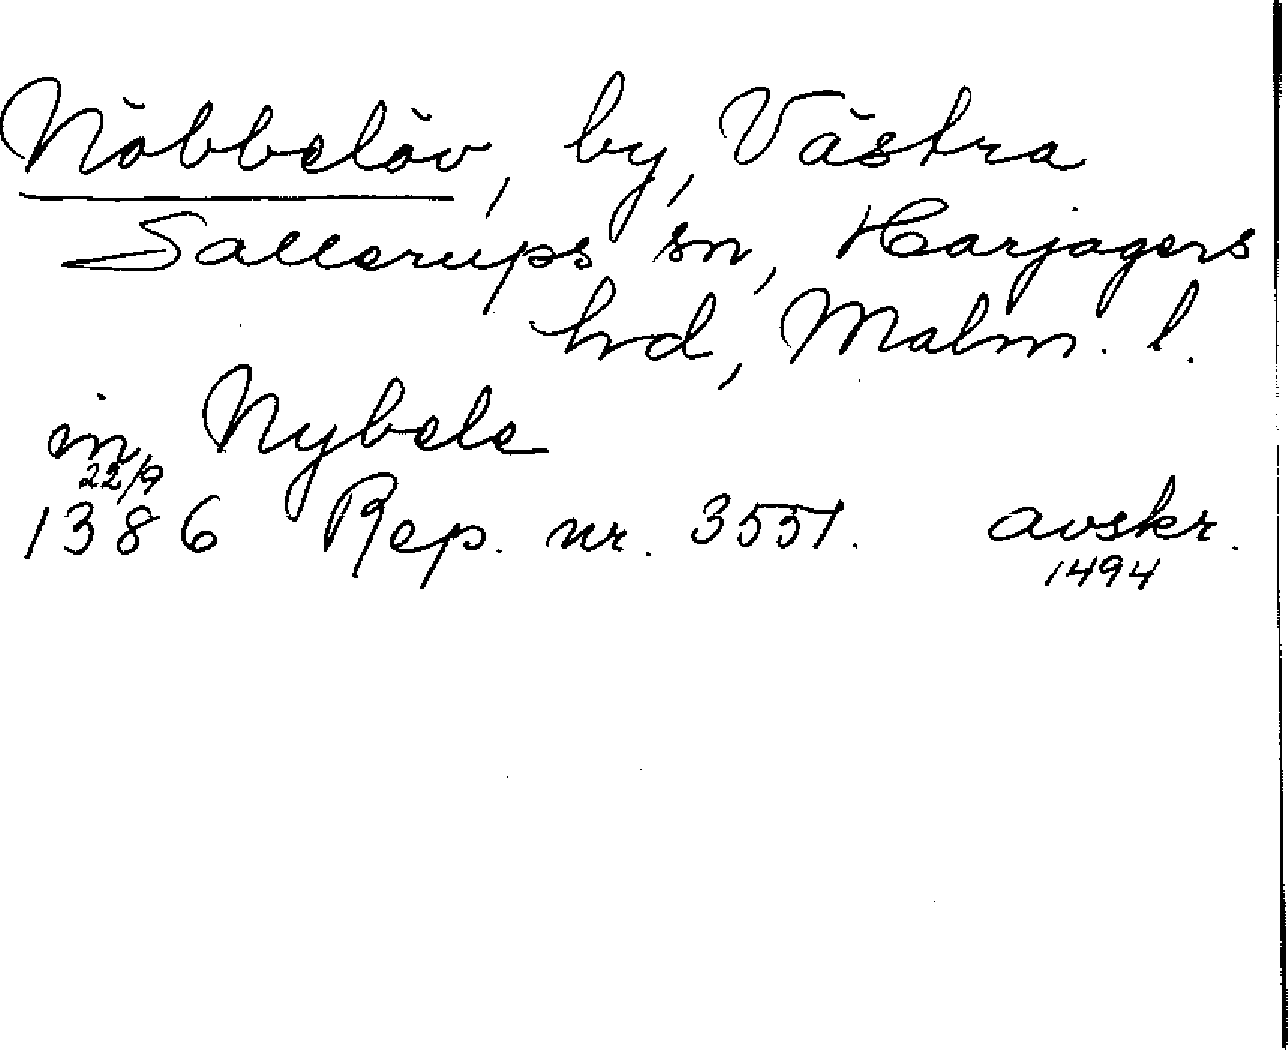 Nöbbelöv, by, Västra
Sallerups sn, Harjagers
hrd, Malm. l.
in Nybele
22/9
1386 Rep. nr. 3551. avskr.
1494